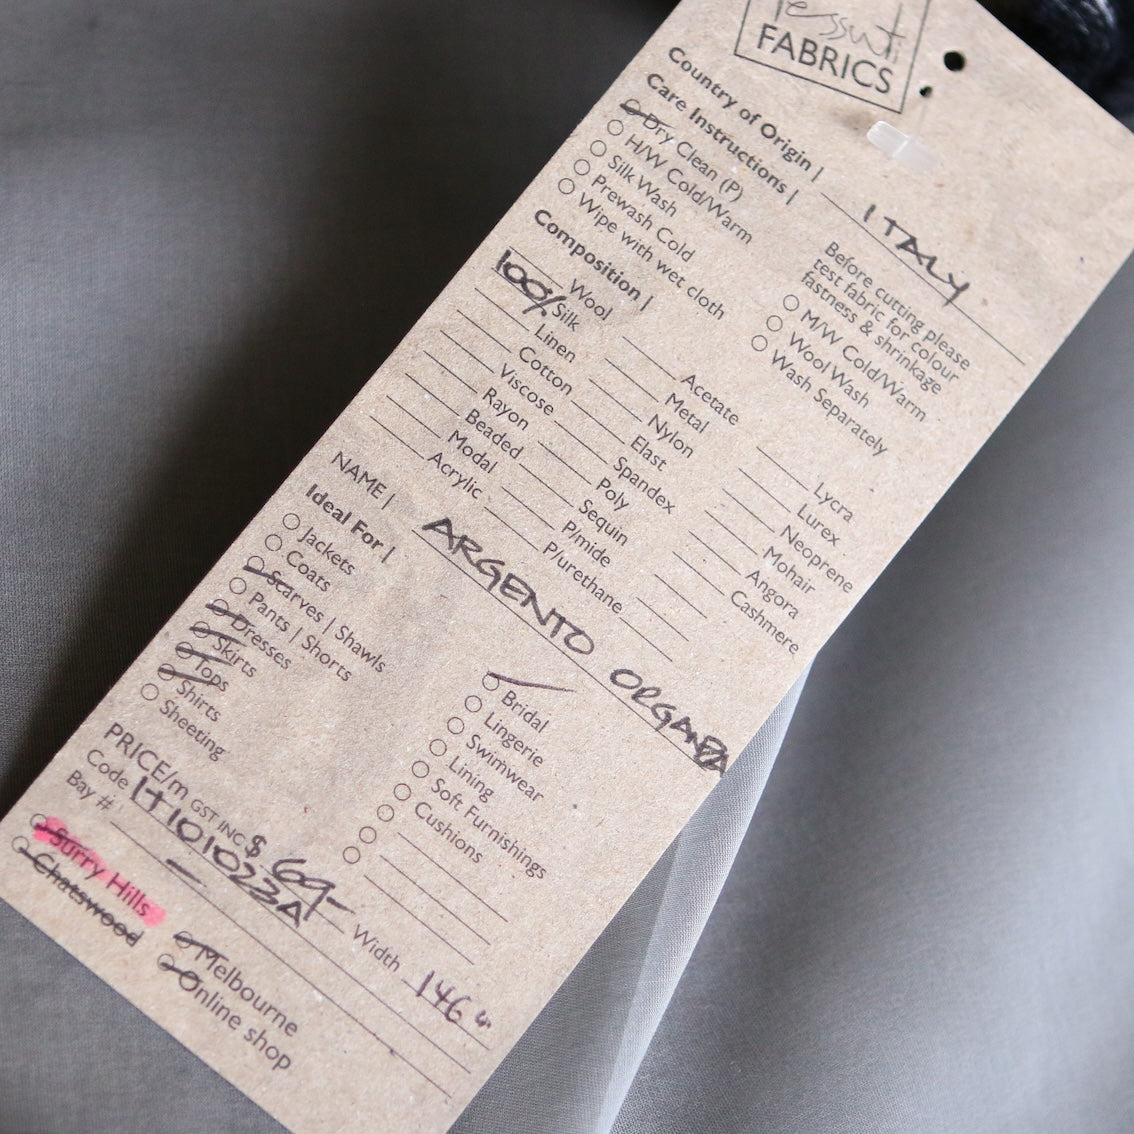 Tessuti
FABRICS
Country of Origin | ITALY
Care Instructions |
Dry Clean (P)
H/W Cold/Warm
Silk Wash
Prewash Cold
Wipe with wet cloth
Before cutting please
test fabric for colour
fastness & shrinkage
M/W Cold/Warm
Wool Wash
Wash Separately
Composition |
Wool
100% Silk
Linen
Cotton
Viscose
Rayon
Beaded
Modal
Acrylic
Acetate
Metal
Nylon
Elast
Spandex
Poly
Sequin
P/mide
P/urethane
Lycra
Lurex
Neoprene
Mohair
Angora
Cashmere
NAME | ARGENTO ORGANZA
Ideal For |
Jackets
Coats
Scarves | Shawls
Pants | Shorts
Dresses
Skirts
Tops
Shirts
Sheeting
Bridal
Lingerie
Swimwear
Lining
Soft Furnishings
Cushions
PRICE/m GST INC $ 69-
Width 146
Code IT101023A
Bay #
Surry Hills
Chatswood
Melbourne
Online shop